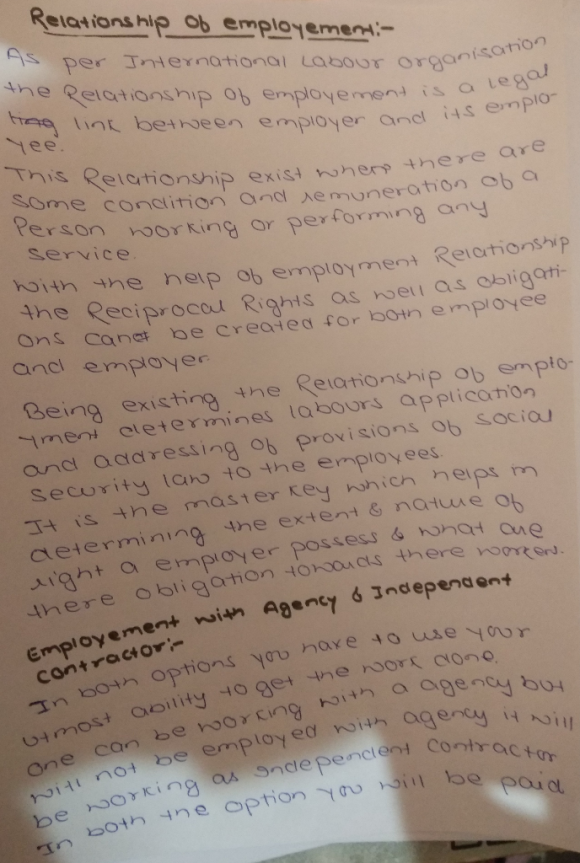 Relationship Of employement:-
As per International Labour organisation
the Relationship Of employement is a legal
link between employer and its emplo-
yee.
This Relationship exist where there are
some condition and remuneration of a
Person working or performing any
service.
with the help of employment Relationship
the Reciprocal Rights as well as obligati-
ons can be created for both employee
and employer
Being existing the Relationship of emplo-
yment determines labours application
and addressing of provisions of social
security law to the employees.
It is the master key which helps in
determining the extent & nature of
right a employer possess & what are
there obligation towards there workers.
Employement with Agency & Independent
contractor:-
In both options you have to use your
utmost ability to get the work done.
one can be working with a agency but
will not be employed with agency it will
be working as independent contractor
In both the option you will be paid